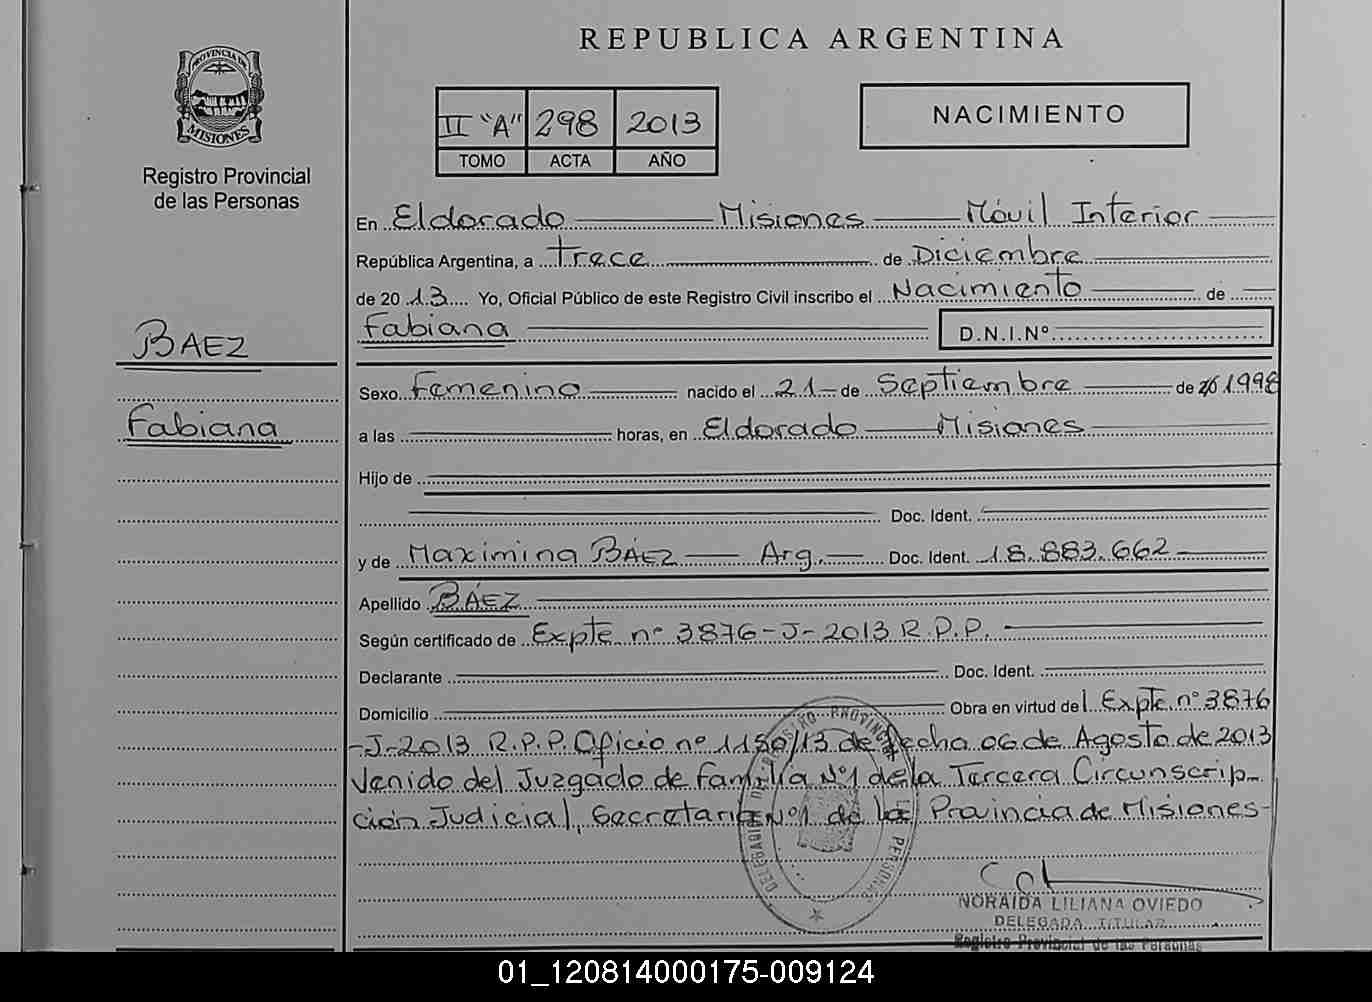 PROVINCIA DE
MISIONES
Registro Provincial
de las Personas
BAEZ
Fabiana
REPUBLICA ARGENTINA
II "A" 298 2013
TOMO ACTA AÑO
NACIMIENTO
En Eldorado Misiones Móvil Interior
República Argentina, a trece de Diciembre
de 2013 Yo, Oficial Público de este Registro Civil inscribo el Nacimiento de
Fabiana D.N.I.Nº
Sexo Femenino nacido el 21 de Septiembre de 1998
a las horas, en Eldorado Misiones
Hijo de
Doc. Ident.
y de Maximina BÁEZ Arg. Doc. Ident. 18.883.662
Apellido BÁEZ
Según certificado de Expte nº 3876-J-2013 R.P.P.
Declarante Doc. Ident.
Domicilio Obra en virtud del Expte. nº 3876
-J-2013 R.P.P. Oficio nº 1150/13 de fecha 06 de Agosto de 2013
Venido del Juzgado de Familia Nº1 de la Tercera Circunscrip-
ción Judicial, Secretaria Nº1 de la Provincia de Misiones-
REGISTRO PROVINCIAL DE LAS PERSONAS
NORAIDA LILIANA OVIEDO
DELEGADA TITULAR
Registro Provincial de las Personas
01_120814000175-009124